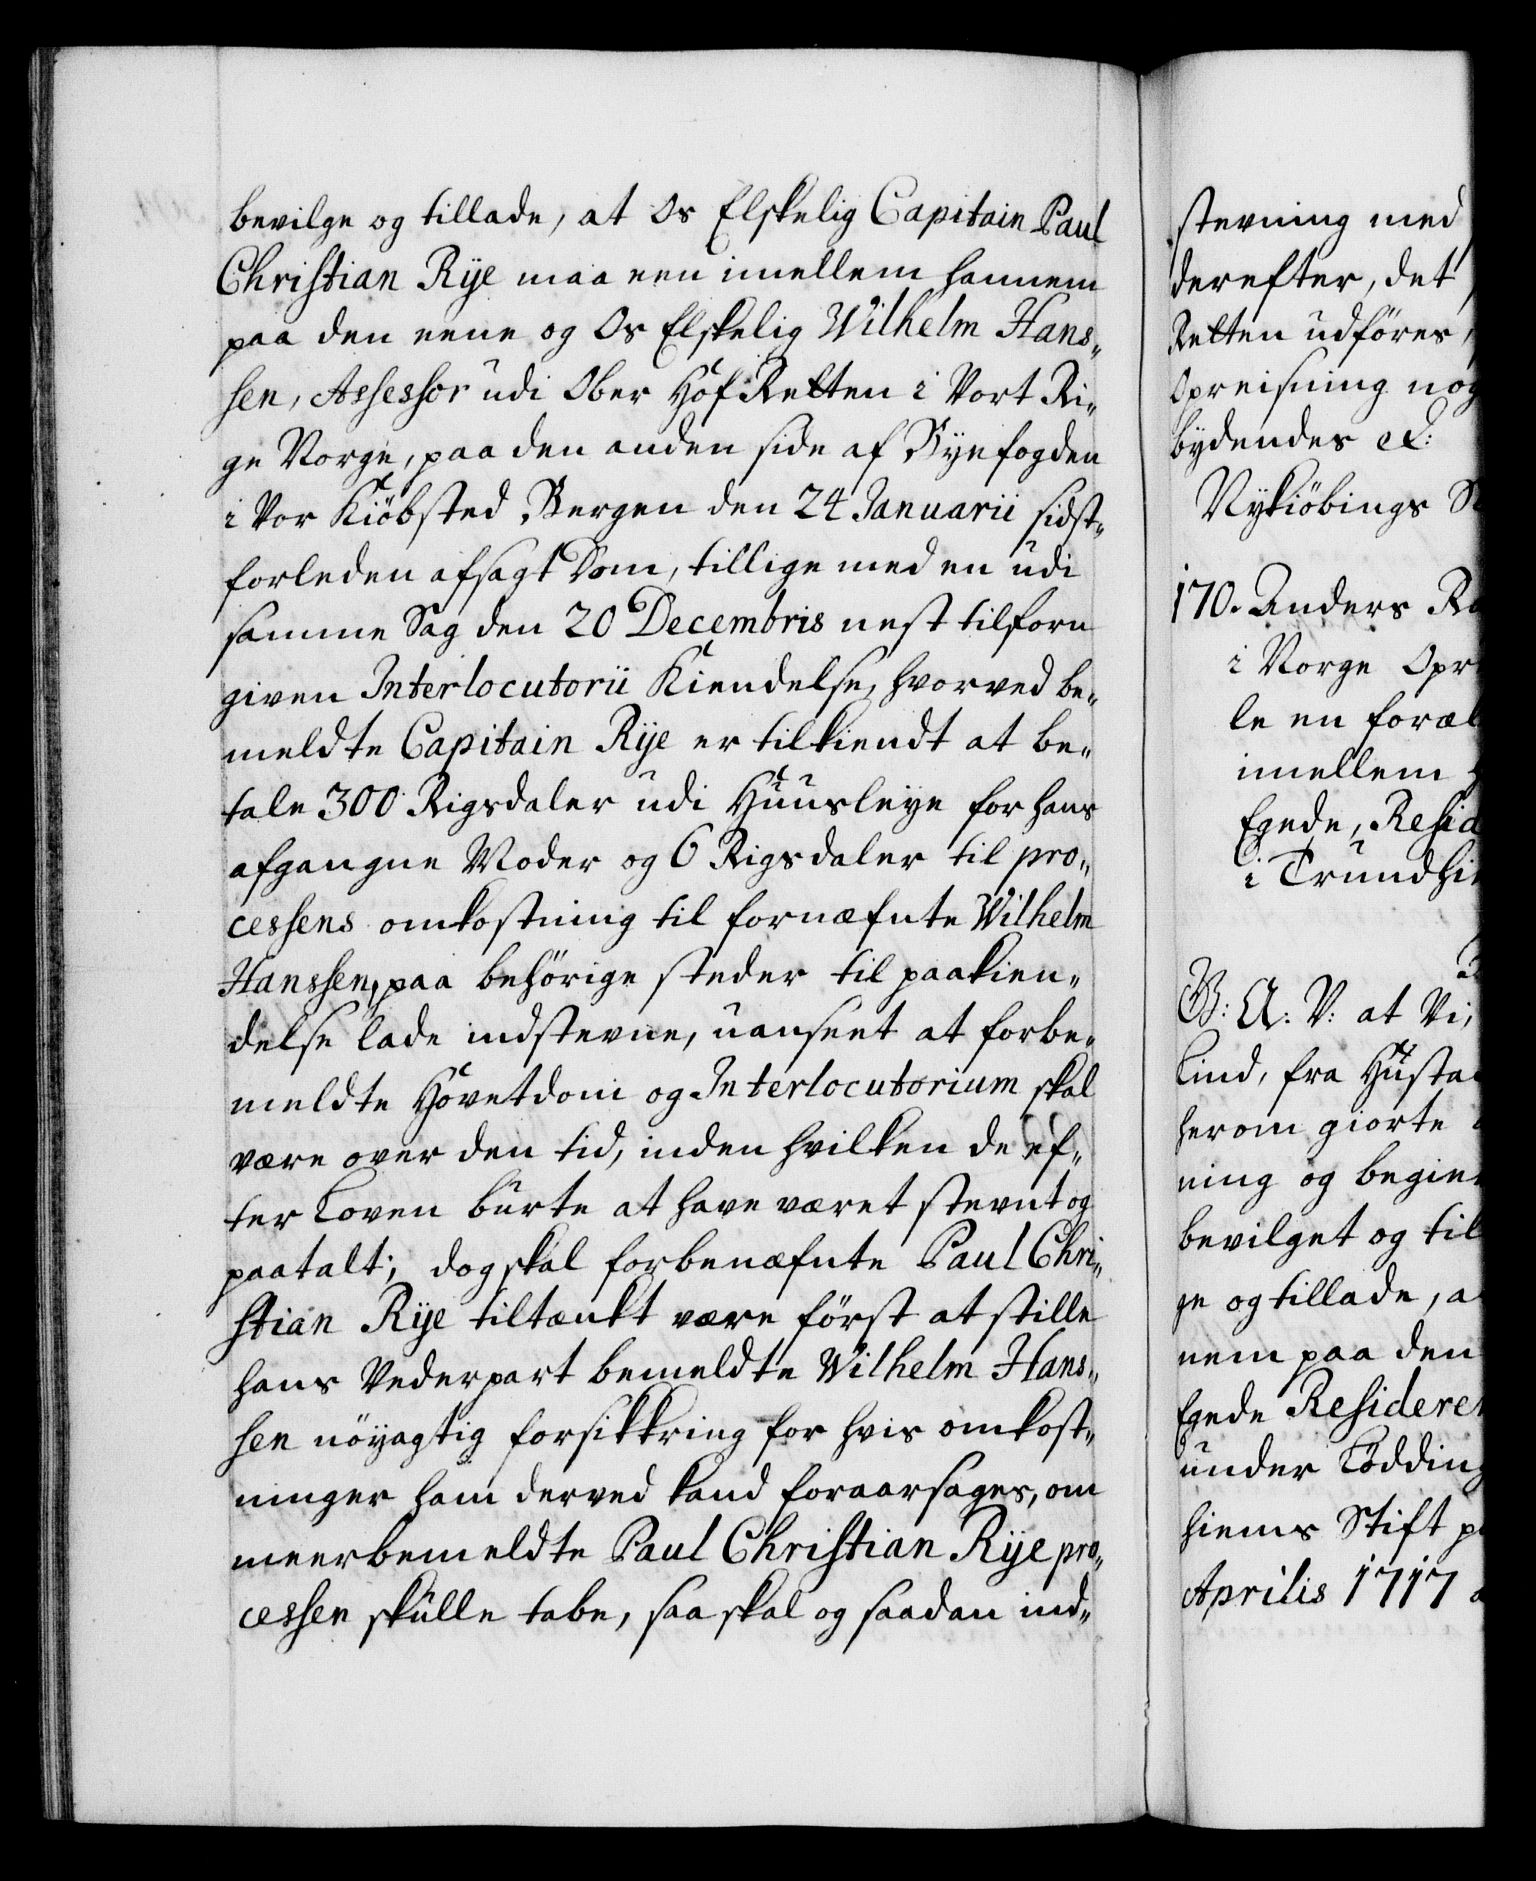 bevilge og tillade, at Os Elskelig Capitain Paul
Christian Rÿe maa een imellem hannem
paa den eene og Os Elskelig Wilhelm Hans„
sen, Assessor udi Ober Hof Retten i Vort Ri„
ge Norge, paa den anden side af Byefogden
i Vor Kiöbsted Bergen den 24 Januarii sidst„
forleden afsagt Dom, tillige med en udi
samme Sag den 20 Decembris nest tilforn
given Interlocutorii Kiendelse, hvorved be„
meldte Capitain Rÿe er tilkiendt at be„
tale 300 Rigsdaler udi Huusleye for hans
afgangne Moder og 6 Rigsdaler til pro„
cessens omkostning til fornæfnte Wilhelm
Hanssen, paa behörige steder til paakien„
delse lade indstevne, uanseet at forbe„
meldte Hovetdom og Interlocutorium skal
være over den tid, inden hvilken de ef„
ter Loven burte at have været stevnt og
paatalt; dog skal forbenæfnte Paul Chri„
stian Rÿe tiltænkt være först at stille
hans Vederpart bemeldte Wilhelm Hans„
sen nöyagtig forsikkring for hvis omkost„
ninger ham derved kand foraarsages, om
meerbemeldte Paul Christian Rÿe pro„
cessen skulle tabe, saa skal og saadan ind„
stevning med
derefter, det
Retten udföres,
Opreisning nog
bydendes etc:
Nykiöbings
170. Anders
i Norge Opr
le en foræl
imellem
Egede, Resid
i Trundhie
G: A: V: at Vi,
Lind, fra Husta
herom giorte
ning og begier
bevilget og til
ge og tillade, a
nem paa den
Egede Residere
under Lödding
hiems Stift
Aprilis 1717